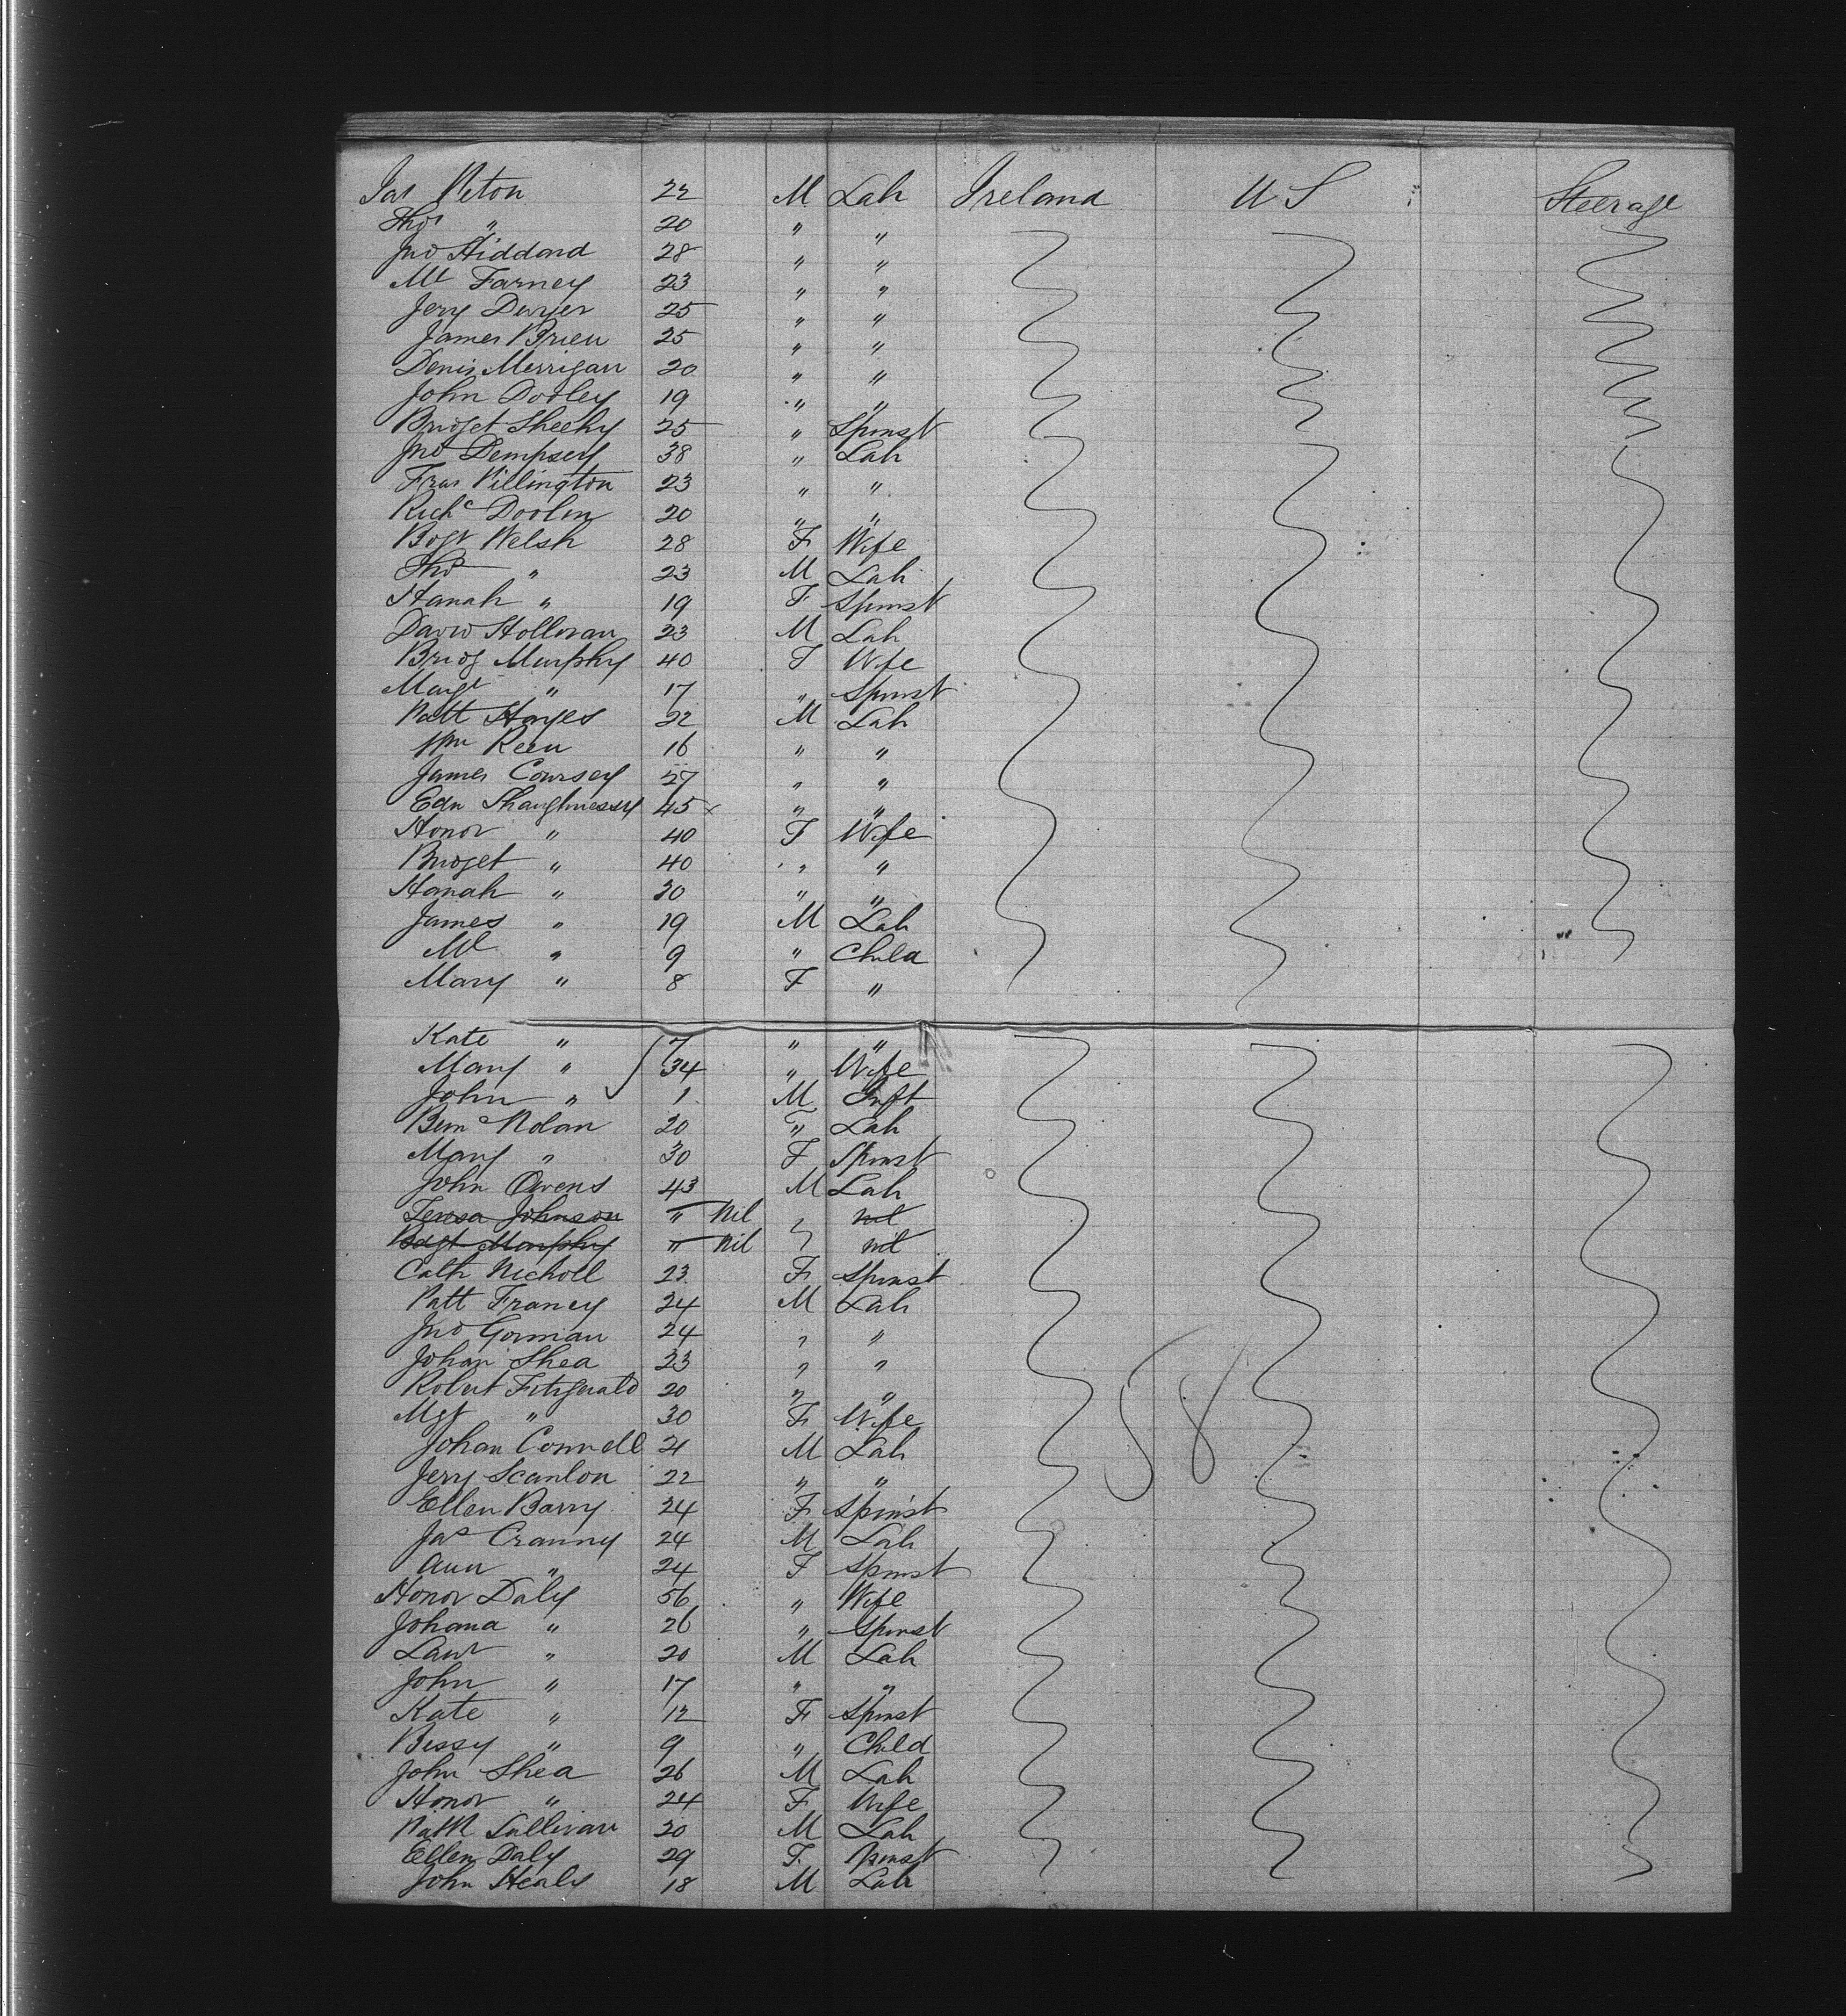 Jas Peton 22 M Lab Ireland US Steerage
Thos " 20 " "
Jno Hiddard 28 " "
Ml Farney 23 " "
Jery Dwyer 25 " "
James Brien 25 " "
Denis Merrigan 20 " "
John Dooley 19 " "
Bridget Sheehy 25 " Spinst
Jno Dempsey 38 " Lab
Fras Pillington 23 " "
Richd Doolin 20 " "
Bdgt Welsh 28 F Wife
Thos " 23 M Lab
Hanah " 19 F Spinst
David Holloran 23 M Lab
Bridg Murphy 40 F Wife
Margt " 17 " Spinst
Patt Hayes 22 M Lab
Wm Keen 16 " "
James Coursey 27 " "
Edn Shaughnessy 45 x " "
Honor " 40 F Wife
Bridget " 40 " "
Hanah " 30 " "
James " 19 M Lab
Ml " 9 " Child
Mary " 8 F "
Kate " 7 " "
Mary " 34 " Wife
John " 1 M Inft
Nolan 20 " Lab
Mary " 30 F Spinst
John Owens 43 M Lab
Teresa Johnson " Nil " nil
Bdgt Murphy " Nil " nil
Cath Nicholl 23 F Spinst
Patt Franey 24 M Lab
Jno Gorman 24 " "
Johan Shea 23 " "
Robert Fitzgerald 20 " "
Mgt " 30 F Wife
Johan Connell 21 M Lab
Jery Scanlon 22 " "
Ellen Barry 24 F Spinst
Jas Cranny 24 M Lab
Ann " 24 F Spinst
Honor Daly 56 " Wife
Johana " 26 " Spinst
Lawr " 20 M Lab
John " 17 " "
Kate " 12 F Spinst
Bessy " 9 " Child
John Shea 26 M Lab
Honor " 24 F Wife
Patk Sullivan 30 M Lab
Ellen Daly 29 F Spinst
John Healy 18 M Lab
58